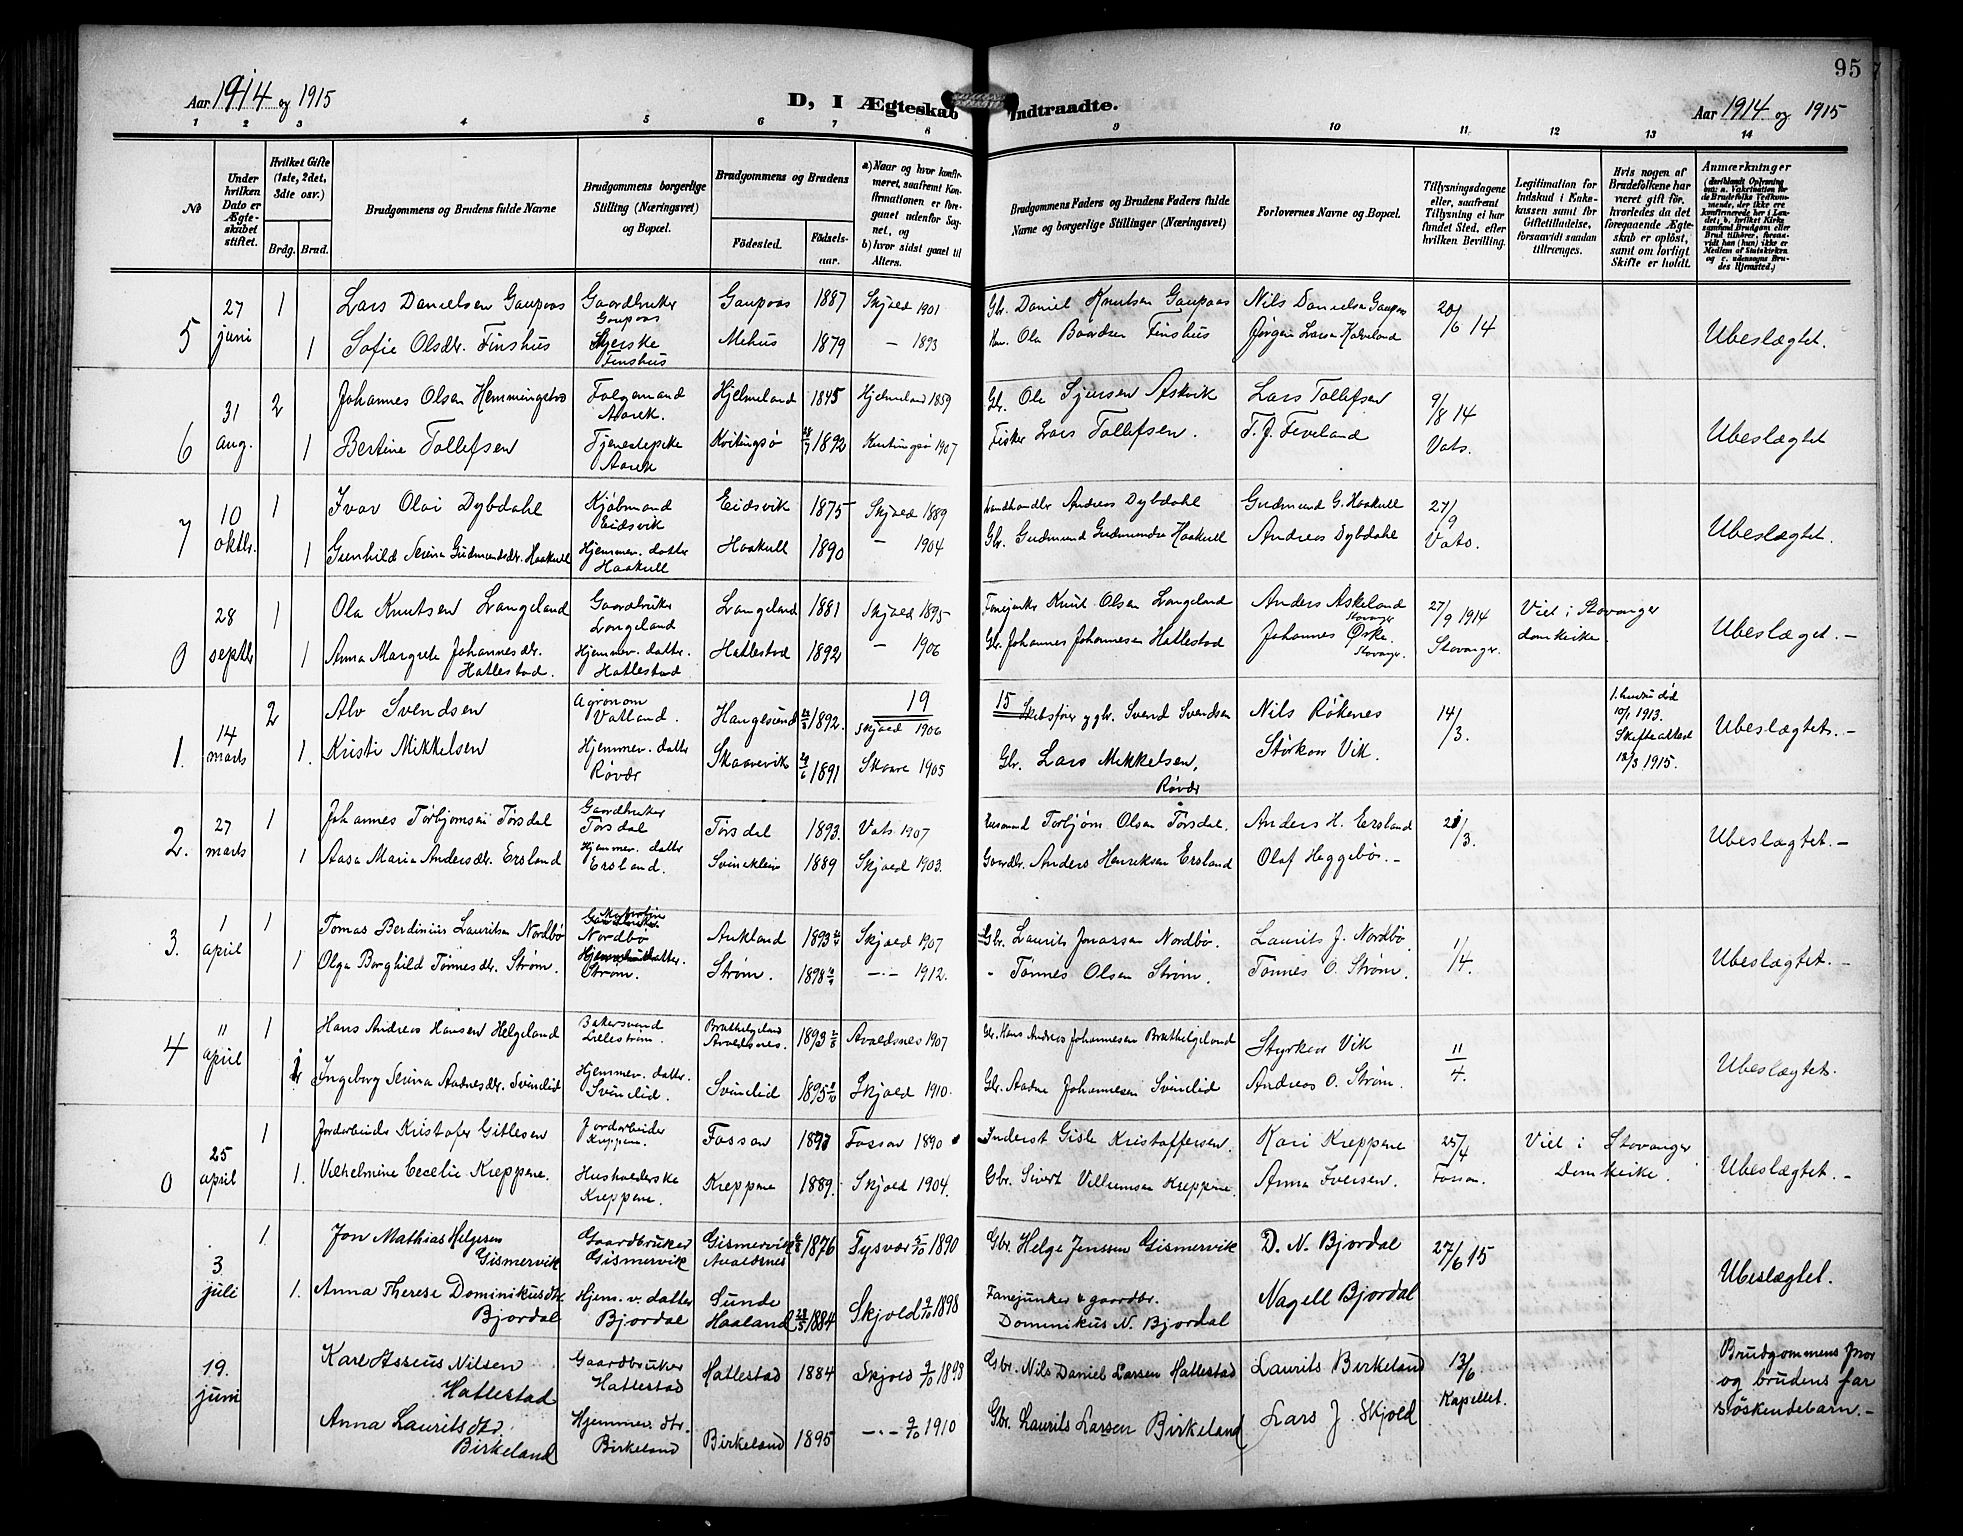 95
Aar 1914 og 1915
D, I Ægteskab Indtraadte.
Aar 1914 og 1915
1 2 3 4 5 6 7 8 9 10 11 12 13 14
No
Under hvilken Dato er Ægteskabet stiftet.
Hvilket Gifte (1ste, 2det, 3die osv.)
Brdg. Brud.
Brudgommens og Brudens fulde Navne
Brudgommens borgerlige Stilling (Næringsvei) og Bopæl.
Brudgommens og Brudens
Fødested. Fødselsaar.
a) Naar og hvor konfirmeret, saafremt Konfirmationen er foregaaet udenfor Sognet, og b) hvor sidst gaaet til Alters.
Brudgommens Faders og Brudens Faders fulde Navne og borgerlige Stillinger (Næringsvei)
Forlovernes Navne og Bopæl.
Tillysningsdagene eller, saafremt Tillysning ei har fundet Sted, efter hvilken Bevilling.
Legitimation for Indskud i Enkekassen samt for Giftetilladelse, forsaavidt saadan tiltrænges.
Hvis nogen af Brudefolkene har været gift før, hvorledes da det foregaaende Ægteskab er opløst, samt om lovligt Skifte er holdt.
Anmærkninger
5 27 juni 1 Lars Danielsen Gaupaas Gaardbruker Gaupaas Gaupaas 1887 Skjold 1901 Gbr. Daniel Knutsen Gaupaas Nils Danielsen Gaupaas 20/6 14
1 Sofie Olsdr. Finshus Finshus Mehus 1879 — 1893 Ola Baardsen Finshus Jørgen Larsen Ubeslægtet.
6 31 aug. 2 Johannes Olsen Hemmingstad Folgemand Aarek. Hjelmeland 1845 Hjelmeland 1859 Gbr. Ole Sjursen Askvik Lars Tollefsen 9/8 14
1 Bertine Tollefsen Tjenestepike Aarek Kvitingsø 1892 Kvitingsø 1907 Fisker Lars Tollefsen. T. J. Feveland Vats. Ubeslægtet
7 10 oktbr. 1 Ivar Olai Dybdahl Kjøbmand Eidsvik Eidsvik 1875 Skjold 1889 Landhandler Andreas Dybdahl Gudmund G. Haakull 27/9
1 Gunhild Serina Gudmundsdr. Haakull Hjemmev. datter Haakull Haakull 1890 — 1904 Gbr. Gudmund Gudmundsen Haakull Andreas Dybdahl Vats. Ubeslægtet.
0 28 septbr 1 Ola Knutsen Langeland Gaardbruker Langeland Langeland 1881 Skjold 1895 Fanejunker Knut Olsen Langeland Anders Askeland Stavanger 27/9 1914 Viet i Stavanger
1 Anna Margrete Johannesdr. Hatlestad. Hjemmev. datter. Hatlestad Hatlestad 1892 — 1906 Gbr. Johannes Johannesen Hatlestad Johannes Ørke. Stavanger. Stavanger. domkirke. Ubeslæget. —
19 15
1. 14 marts 2 Alv Svendsen Agronom Vatland. Haugesund 1892. Skjold 1906 Skibsfører og gbr. Svend Svendsen Nils Røkenes 14/3. 1. hustru død 10/1 1913. Skifteattest 12/3 1915.
1. Kristi Mikkelsen Hjemmev. datter Røvær Skaarevik 29/6 1891 Skaare 1905 Gbr. Lars Mikkelsen, Røvær Styrkor Vik. Ubeslægtet. —
2. 27 marts 1 Johannes Torbjørnsen Tørsdal Gaardbruker Tørsdal Tørsdal 1893. Vats 1907 Torbjørn Olsen Tørsdal. Anders H. Ersland 21/3.
1 Aasa Maria Andersdr. Ersland Hjemmev. datter Ersland. 1889 Skjold 1903. Gaardbr. Anders Henriksen Ersland Olaf Heggebø. — Ubeslægtet. —
3. 1 april 1 Tomas Berdinius Lauritsen Nordbø Nordbø Aukland 1893 Skjold 1907 Gbr. Laurits Jonassen Nordbø. Laurits J. Nordbø. 1/4.
1 Olga Borghild Tønnesdr. Strøm. Strøm. Strøm. 1898 —·— 1912. Tønnes Olsen Strøm. Tønnes O. Strøm. Ubeslægtet. —
4 11 april 1 Hans Andreas Hansen Helgeland Bakersvend Lillestrøm. Brathelgeland Avaldsnes. 1893 Avaldsnes 1907 Gbr. Hans Andreas Johannesen Brathelgeland Styrkor Vik 11/4.
1 Ingeborg Serina Aadnesdr. Svinelid Hjemmev. datter. Svinelid. Svinelid 1895 Skjold 1910. Gbr. Aadne Johannesen Svinelid Andreas O. Strøm. Ubeslægtet.
0 25 april 1 Jordarbeider Kristofer Gitlesen Jordarbeider Kreppene. Fossan 1897 Fossan 1890 Inderst Gisle Kristoffersen. Kari Kreppene 25/4 Viet i Stavanger
1. Vilhelmine Cecelie Kreppene. Husholderske Kreppene. Kreppene 1889. Skjold 1904. Gbr. Sivert Villumsen Kreppene. Anna Iversen. Fossan. Domkirke. Ubeslægtet. —
3 juli 1. Jon Mathias Helgesen Gismervik Gaardbruker Gismervik Gismervik Avaldsnes 1876 Tysvær 5/10 1890 Gbr. Helge Jenssen Gismervik D. N. Bjordal 27/6 15
1. Anna Therese Dominikusdtr. Bjordal Hjem. v. datter Bjordal Sunde Haaland 23/5 1884 Skjold 9/10 1898 Fanejunker & gaardbr. Dominikus N. Bjordal Nagell Bjordal Ubeslægtet.
19. juni Karl Asseus Nilsen Hatlestad Gaardbruker Hatlestad Hatlestad 1884 Skjold 9/10 1898 Gbr. Nils Daniel Larsen Hatlestad Laurits Birkeland 13/6 Brudgommens mor og brudens far søskendebarn. —
Anna Lauritsdtr. Birkeland Hjemmev. dtr. Birkeland Birkeland 1895 —·— 9/10 1910 Gbr. Laurits Larsen Birkeland Lars J. Skjold Kapellet.